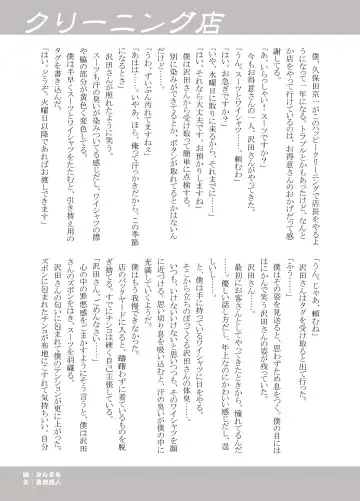 クリーニング店
僕、久保田京一がこのハッピークリーニングで店長をやるよ
うになって一年になる。トラブルとかもあったけど、なんと
か店をやって行けているのは、お得意さんのおかげだって感
謝してる。
「あ、いらっしゃい。スーツですか?」
今もお得意さんの一人、沢田さんがやってきた。
「うん。スーツとワイシャツ…。頼むわ」
「はい。お急ぎですか?」
「いや、水曜日に取りに来るから、それまでに……」
「はい。それなら大丈夫です。お預かりしますね」
僕は沢田さんから受け取って簡単に点検する。
別に染みができてるとか、ボタンが取れてるとかはないん
だけど……。
「うわ、ずいぶん汗れてますねぇ」
「あはは……。いやあ、ほら、俺って汗っかきだから、この季節
になるとさ」
沢田さんが照れたように笑う。
スーツも汗の臭いが染みてる感じだし、ワイシャツの襟
や脇の部分が黄色く変色してる。
僕は手早くスーツとワイシャツをたたむと、引き替え用の
タグを書き込んだ。
「はい、どうぞ。火曜日以降であればお渡しできます」
「うん、じゃあ、頼むね」
沢田さんはタグを受け取ると出て行った。
「ふう……」
僕はその姿を見送ると、思わずため息をつく。僕の目には
はにかんで笑う沢田さんの姿が残っていた。
沢田さん……。
最初にお客さんとしてやってきたときから、憧れてるんだ
……。優しい話し方だし、年上なのにかわいい感じだし、逞
しいし。
と、僕は手に持っているワイシャツに目をやる。
そこから立ちのぼってくる沢田さんの体臭……。
いつも、いけないいけないと思っても、そのワイシャツを顔
に近づける。思い切り息を吸い込むと、汗の臭いが僕の中に
充満していくようだ。
僕はもう我慢できなかった。
店のバックヤードに入ると、躊躇わずに着ているものを脱
ぎ捨てる。すでにチンコは硬く自己主張している。
「沢田さん、ごめんなさい……」
心の中の罪悪感をごまかすようにそう言うと、僕は沢田
さんのズボンをはき、スーツを羽織る。
沢田さんの匂いに包まれて僕のテンションが更に上がった。
ズボンに包まれたチンコが布地にこすれて気持ちいい。自分